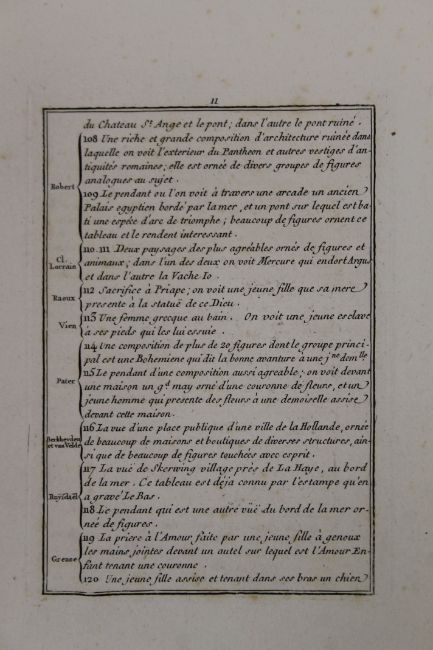 11
du Chateau St. Ange et le pont; dans l'autre le pont ruiné.
108 Une riche et grande composition d'architecture ruinée dans
laquelle on voit l'exterieur du Pantheon et autres vestiges d'an-
tiquités romaines; elle est ornée de divers groupes de figures
analogues au sujet.
Robert
109 Le pendant ou l'on voit à travers une arcade un ancien
Palais egyption bordé par la mer, et un pont sur lequel est ba-
ti une espéce d'arc de triomphe; beaucoup de figures ornent ce
tableau et le rendent interessant.
110. 111 Deux paysages des plus agréables ornés de figures et
Cl. Lorrain
animaux; dans l'un des deux on voit Mercure qui endort Argus
et dans l'autre la Vache Io.
112 Sacrifice à Priape; on voit une jeune fille que sa mere
Raoux
presente à la statuë de ce Dieu.
113 Une femme grecque au bain. On voit une jeune esclave
Vien
à ses pieds qui les lui essuie.
114 Une composition de plus de 20 figures dont le groupe princi-
pal est une Bohemiene qui dit la bonne avanture à une jne. domlle
Pater
115 Le pendent d'une composition aussi agreable; on voit devant
une maison un gd. may orné d'une couronne de fleurs, et un
jeune homme qui presente des fleurs à une demoiselle assise
devant cette maison.
116 La vuë d'une place publique d'une ville de la Hollande, ornée
Berkheyden et van Velde
de beaucoup de maisons et boutiques de diverses structures, ain-
si que de beaucoup de figures touchées avec esprit.
117 La vuë de Skerwing village prés de La Haye, au bord
de la mer. Ce tableau est déja connu par l'estampe qu'en
Ruysdaël
a gravé Le Bas.
118 Le pendant qui est une autre vuë du bord de la mer or-
neé de figures.
119 La priere à l'Amour faite par une jeune fille à genoux
les mains jointes devant un autel sur lequel est l'Amour En-
Greuse
fant tenant une couronne.
120 Une jeune fille assise et tenant dans ses bras un chien